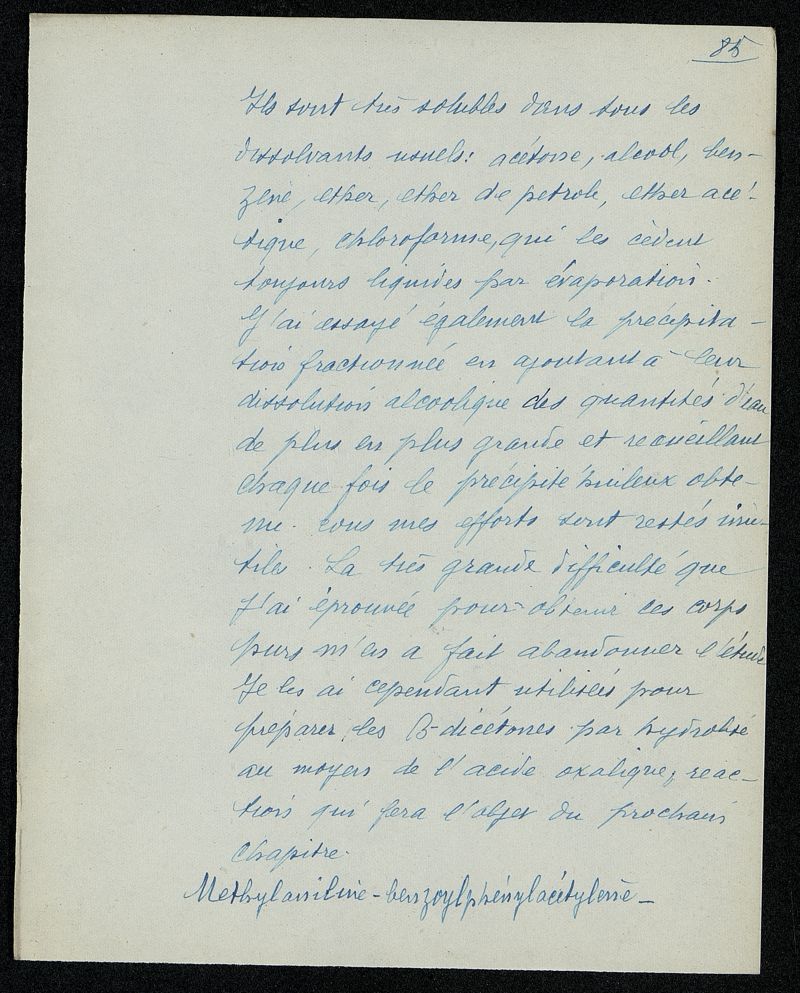 85
Ils sont très solubles dans tous les
dissolvants usuels: acétone, alcool, ben-
zène, ether, ether de petrole, ether acé-
tique, chloroforme, qui les cèdent
toujours liquides par évaporation.
J'ai essayé également la précipita-
tion fractionnée en ajoutant à leur
dissolution alcoolique des quantités d'eau
de plus en plus grande et recueillant
chaque fois le précipité huileux obte-
nu. Tous mes efforts sont restés inu-
tiles. La très grande difficulté que
j'ai éprouvée pour obtenir ces corps
purs m'en a fait abandonner l'étude
Je les ai cependant utilisés pour
préparer les β-dicétones par hydrolise
au moyen de l'acide oxalique, reac-
tion qui fera l'objet du prochain
chapitre.
Methylaniline-benzoylphénylacétylène-